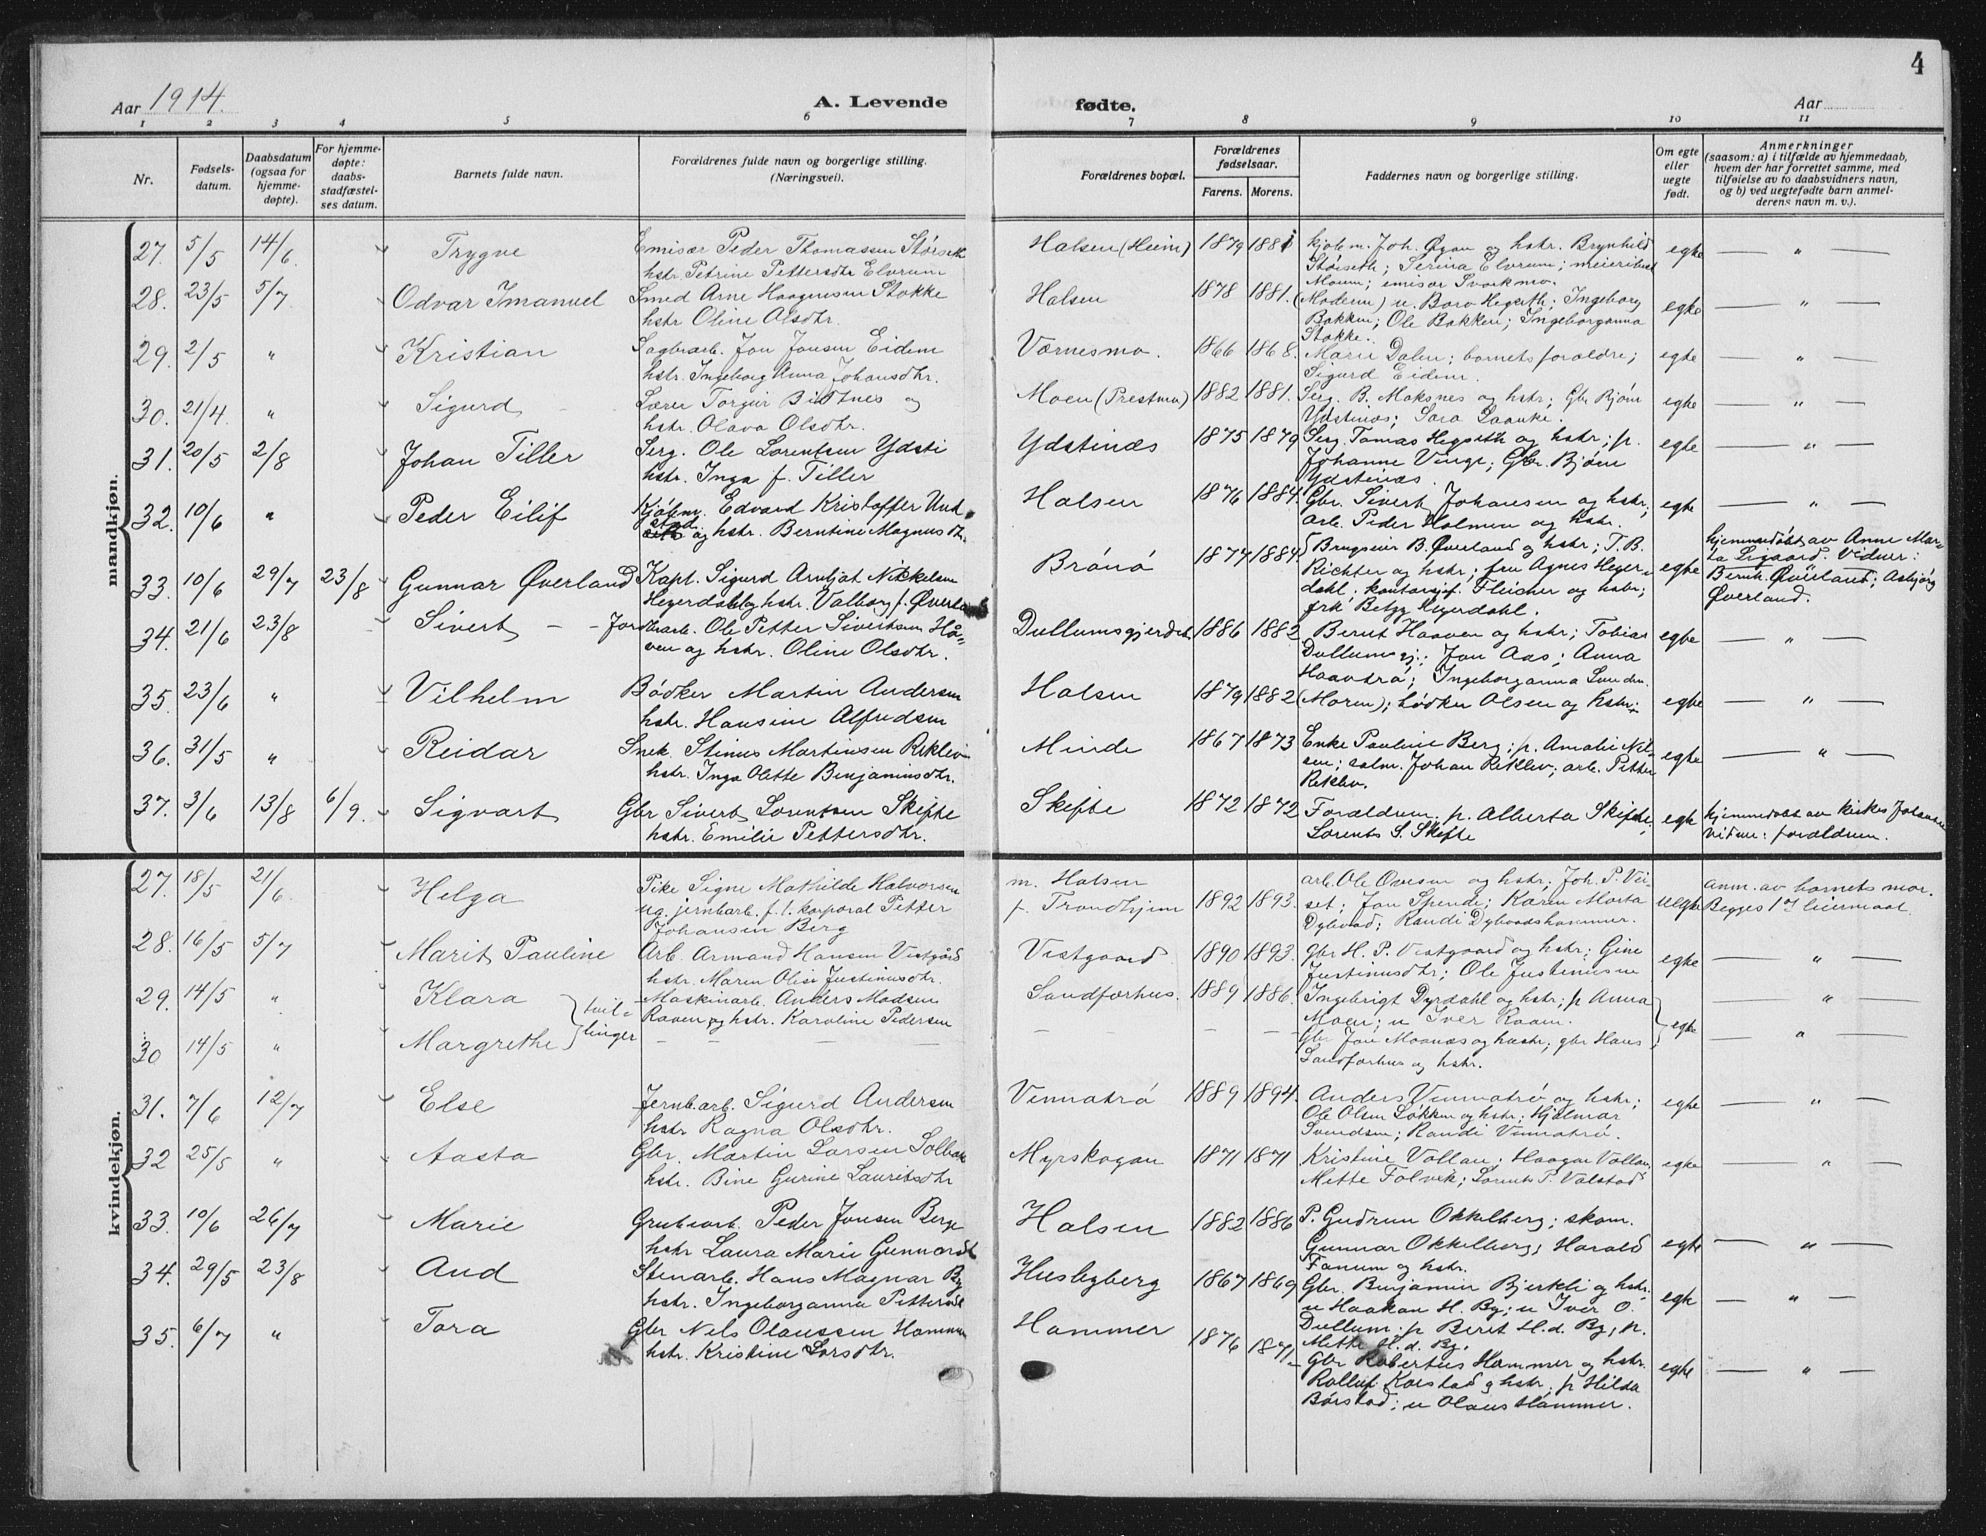 4
Aar 1914.
A. Levende fødte.
Aar
1 2 3 4 5 6 7 8 9 10 11
Nr.
Fødsels-
datum.
Daabsdatum
(ogsaa for
hjemme-
døpte).
For hjemme-
døpte:
daabs-
stadfæstel-
ses datum.
Barnets fulde navn.
Forældrenes fulde navn og borgerlige stilling.
(Næringsvei).
Forældrenes bopæl.
Forældrenes
fødselsaar.
Farens. Morens.
Faddernes navn og borgerlige stilling.
Om egte
eller
uegte
født.
Anmerkninger
(saasom: a) i tilfælde av hjemmedaab,
hvem der har forrettet samme, med
tilføielse av to daabsvidners navn,
og b) ved uegtefødte barn anmel-
derens navn m. v.).
mandkjøn.
27. 5/5 14/6 Trygve
Emisær Peder Thomassen Störseth
hstr Petrine Pettersdtr Elvrum
Halsen (Heim) 1879 1881
kjøbm. Joh. Øyan og hstr. Brynhild
Störseth; Serina Elvrum; meieribest
Moum; emisær Svorkmo.
egte — " —
28. 23/5 5/7 Odvar Imanuel
Smed Arne Haagensen Stokke
hstr Oline Olsdtr.
Halsen 1878 1881.
(Moderen) u. Baro Hegseth; Ingeborg
Bakken; Ole Bakken; Ingeborganna
Stokke.
egte — " —
29. 2/5 " Kristian
Sagbrarb. Jon Jonsen Eidem
hstr. Ingeborg Anna Johansdtr.
Værnesmo. 1866 1868.
Marie Dalen; barnets forældre;
Sigurd Eidem.
egte — " —
30. 21/4 " Sigurd
Lærer Torgeir Bidtnes og
hstr. Olava Olsdtr.
Moen (Prestmo) 1882 1881.
Serg. B. Moksnes og hstr; Gbr Bjørn
Ydstines; Sara Laanke.
egte — " —
31. 20/5 2/8 Johan Tiller
Serg. Ole Lorentsen Ydsti
hstr. Inga f. Tiller
Ydstinæs 1875 1879
Serg. Tomas Hegseth og hstr; p.
Johanne Vinge; Gbr. Bjørn
Ydstinæs.
egte — " —
32. 10/6 " Peder Eilif
Kjöbm. Edvard Kristoffer Und
stad og hstr. Berntine Magnusdtr.
Halsen 1876 1884.
Gbr. Sivert Johansen og hstr;
arb. Peder Holmen og hstr.
egte — " —
33. 10/6 29/7 23/8 Gunnar Øverland
Kapt. Sigurd Arnljot Nickelsen
Hegerdahl og hstr. Valborg f. Øverland
Brönö 1874 1884.
Brugseier B. Øverland og hstr; T. B.
Richter og hstr; fru Agnes Heger-
dahl; kontorsjef. Fleicher og hstr;
frk Betzy Hegerdahl.
egte
hjemmedöbt av Anne Mar-
ta Ligaard. Vidner:
Bernh. Øverland; Asbjörg
Øverland.
34. 21/6 23/8 Sivert
Jordbrarb. Ole Petter Sivertsen Hå-
ven og hstr. Oline Olsdtr.
Dullumsgjerdet. 1886 1882
Bernt Haaven og hstr; Tobias
Dullum ej; Jon Aas; Anna
Haavtrö; Ingeborganna Svendsn.
egte — " —
35. 23/6 " Vilhelm
Bödker Martin Andersen
hstr. Hansine Alfredsen
Halsen 1879 1882
(Moren); bödker Olsen og hstr;
egte — " —
36. 31/5 " Reidar
Snek Stinus Martinsen Reklev
hstr. Inga Olette Benjaminsdtr.
Minde 1867 1873
Enke Pauline Berg; p. Amalie Nil-
sen; salm. Johan Reklev; arb. Petter
Reklev.
egte — " —
37. 3/6 13/8 6/9. Sigvart
Gbr Sivert Lorentsen Skifte
hstr. Emilie Pettersdtr.
Skifte 1872 1872
Forældren. p. Alberta Skifte;
Lorents S. Skifte
egte
hjemmedöbt av kirkes. Johansen
vidne: forældren.
kvindekjøn.
27. 18/5 21/6 Helga
Pike Signe Mathilde Halvorsen
ug. jernbarb. f. t. korporal Petter
Johansen Berg
m. Halsen
f. Trondhjem 1892 1893.
arb. Ole Ovesen og hstr; Joh. P. Vei-
set; Jon Spende; Karen Marta
Dybvad; Randi Dybvadshammer.
uegte
anm. av barnets mor.
Begges 1ste leiermaal.
28. 16/5 5/7 Marit Pauline
Arb. Armand Hansen Vestgård
hstr. Maren Olise Justinusdtr.
Vestgaard 1890 1893.
Gbr H. P. Vestgaard og hstr; Gine
Justinusdtr; Ole Justinusen
egte — " —
29. 14/5 " Klara } tvil-
Maskinarb. Anders Madsen
Raaen og hstr. Karoline Pedersen
Sandfærhus. 1889 1886.
Ingebrigt Dyrdahl og hstr; p Anna
Moen; u Iver Raaen.
} egte — " —
30 14/5 " Margrethe } linger
— — — — —
Gbr Jon Moanæs og hustr; gbr Hans
Sandfærhus og hstr.
— " —
31. 7/6 12/7 Else
Jernb. arb. Sigurd Andersen
hstr Ragna Olsdtr.
Vinnatrö 1889 1894.
Anders Vinnatrö og hstr;
Ole Olsen Løkken og hstr; Hjalmar
Svendsen; Randi Vinnatrö.
egte — " —
32 25/5 " Aasta
Gbr. Martin Larsen Solbak
hstr. Bine Gurine Lauritsdtr
Myrskogan 1871 1871
Kristine Vollan; Haagen Vollan;
Mette Folvik; Lorents P. Valstad
egte — " —
33. 10/6 26/7 Marie
Grubearb. Peder Jonsen Berge
hstr Laura Marie Gunnarsdt
Halsen 1882 1886
P. Gudrun Okkelberg; skom.
Gunnar Okkelberg; Harald
Fanum og hstr.
egte — " —
34. 29/5 23/8 Aud
Stenarb. Hans Magnar By
hstr. Ingeborganna Pettersdt
Husbyberg 1867 1869
Gbr. Benjamin Bjerkli og hstr.
u Haakon H. By; u Iver O.
Dullum. p Berit H. d. By, p.
Mette H. d. By.
egte — " —
35. 6/7 " Tora
Gbr Nels Olaussen Hammer
hstr. Kristine Larsdtr.
Hammer 1876 1871
Gbr Robertus Hammer og hstr.
Rolluf Korstad og hstr. p Hilda
Børstad; u Olaus Hammer.
egte — " —